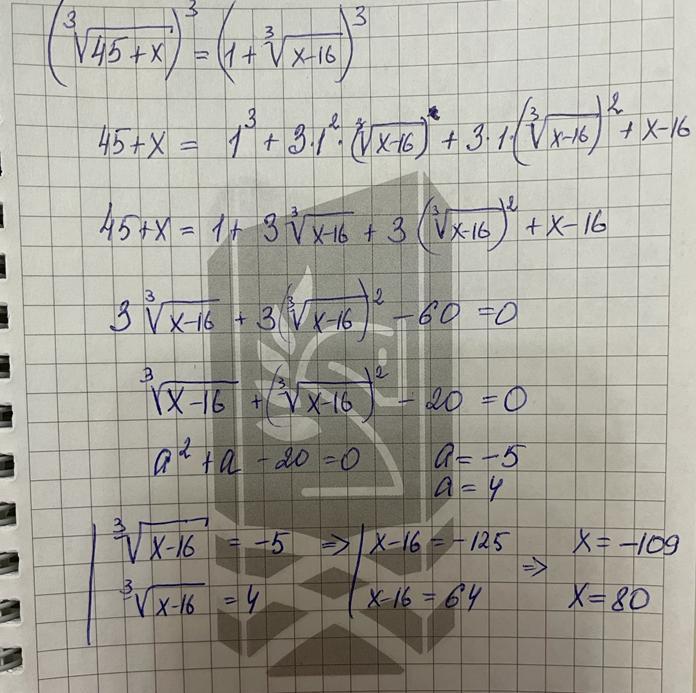 (∛(45+x))³ = (1+∛(x-16))³
45+x = 1³ + 3·1²·(∛(x-16)) + 3·1·(∛(x-16))² + x-16
45+x = 1+ 3∛(x-16) + 3(∛(x-16))² + x-16
3∛(x-16) + 3(∛(x-16))² - 60 = 0
∛(x-16) + (∛(x-16))² - 20 = 0
a² + a - 20 = 0 a = -5
a = 4
∛(x-16) = -5 => x-16 = -125 => x = -109
∛(x-16) = 4 x-16 = 64 x = 80